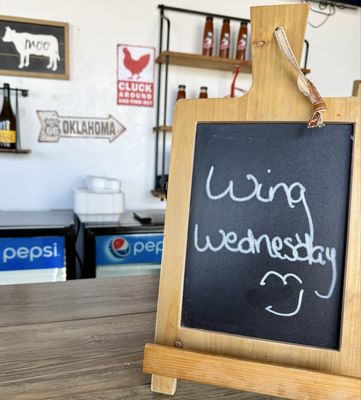 moo
CLUCK
AROUND
AND
FIND OUT
66 OKLAHOMA
pepsi
pepsi
Wing
Wednesday